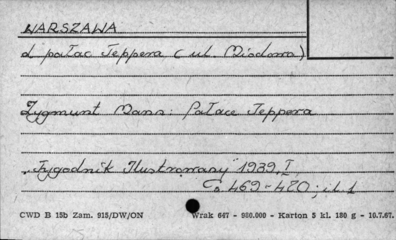 WARSZAWA
d pałac Teppera (ul. Miodowa)
Zygmunt Mann: Pałace Teppera
"Tygodnik Ilustrowany" 1939, I
s. 469-470; il. 1
CWD B 15b Zam. 915/DW/ON Wrak 647 - 980.000 - Karton 5 kl. 180 g - 10.7.67.